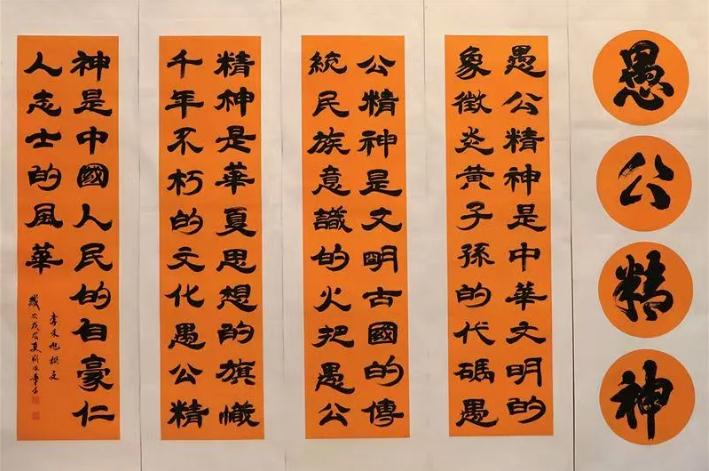 愚公精神
愚公精神是中華文明的
象徵炎黃子孫的代碼愚
公精神是文明古國的傳
統民族意識的火把愚公
精神是華夏思想的旗幟
千年不朽的文化愚公精
神是中國人民的自豪仁
人志士的風華
撰文